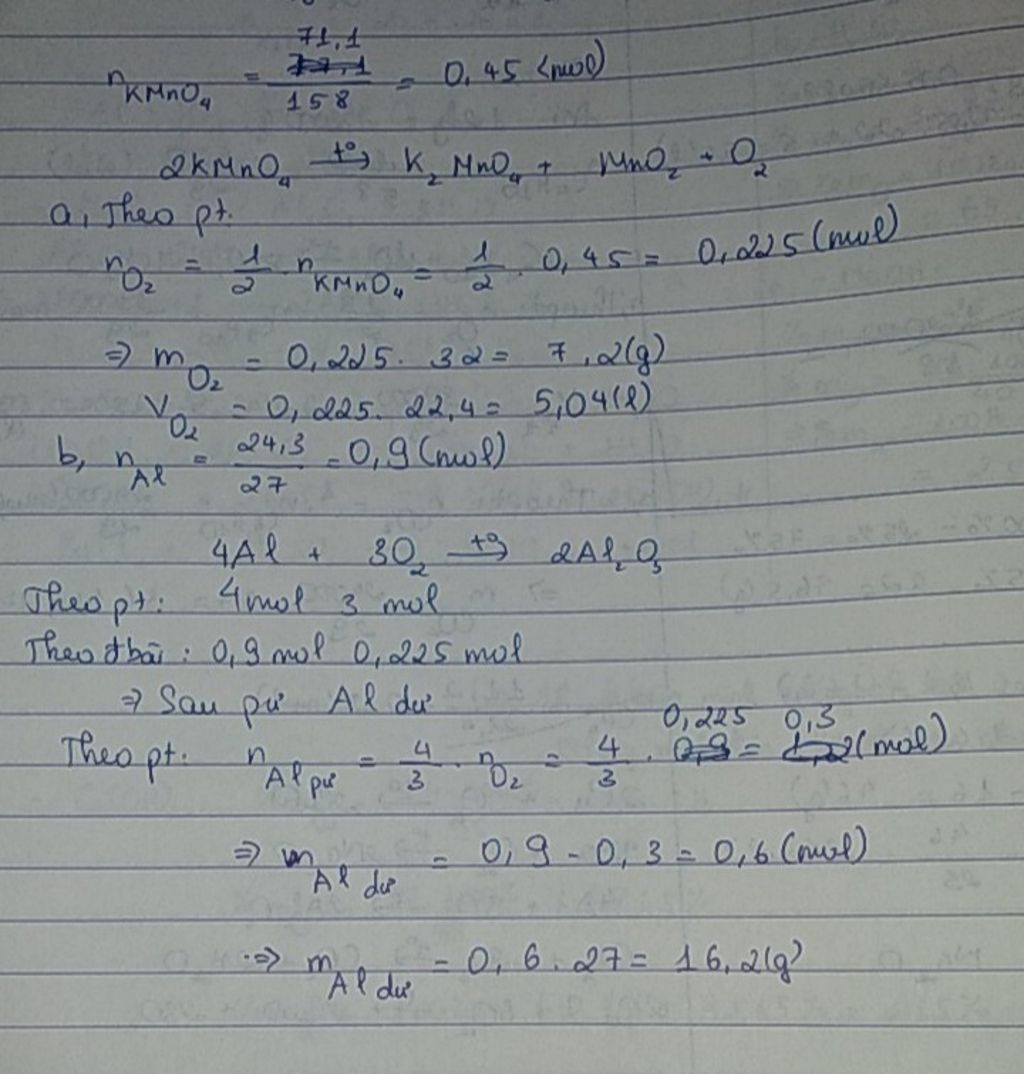 n_KMnO₄ = 71,1/158 = 0,45 (mol)
2KMnO₄ t°→ K₂MnO₄ + MnO₂ + O₂
a, Theo pt.
n_O₂ = 1/2 . n_KMnO₄ = 1/2 . 0,45 = 0,225 (mol)
⇒ m_O₂ = 0,225. 32 = 7,2(g)
V_O₂ = 0,225. 22,4 = 5,04(l)
b, n_Al = 24,3/27 = 0,9 (mol)
4Al + 3O₂ t°→ 2Al₂O₃
Theo pt: 4mol 3 mol
Theo đbài: 0,9 mol 0,225 mol
⇒ Sau pứ Al dư
Theo pt: n_Al pứ = 4/3 . n_O₂ = 4/3 . 0,225 = 0,3 (mol)
⇒ n_Al dư = 0,9 - 0,3 = 0,6 (mol)
⇒ m_Al dư = 0,6. 27 = 16,2(g)